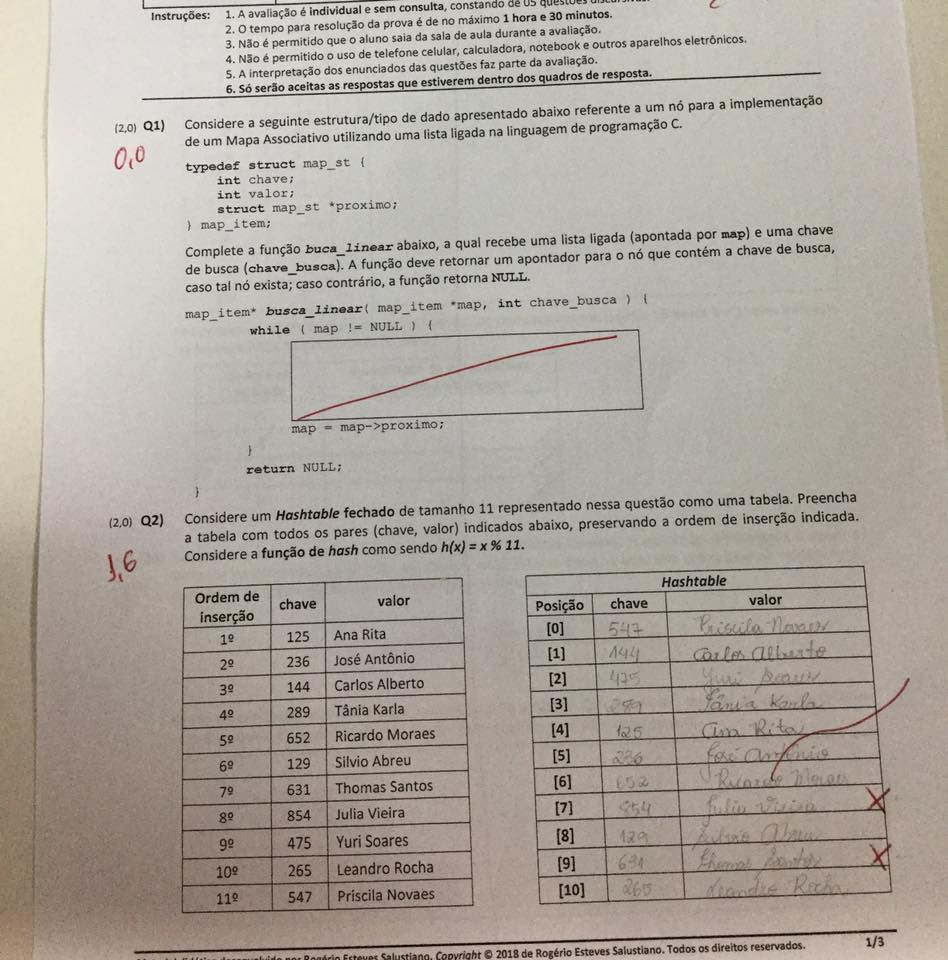 Instruções: 1. A avaliação é individual e sem consulta, constando de 05 questões
2. O tempo para resolução da prova é de no máximo 1 hora e 30 minutos.
3. Não é permitido que o aluno saia da sala de aula durante a avaliação.
4. Não é permitido o uso de telefone celular, calculadora, notebook e outros aparelhos eletrônicos.
5. A interpretação dos enunciados das questões faz parte da avaliação.
6. Só serão aceitas as respostas que estiverem dentro dos quadros de resposta.
(2,0) Q1) Considere a seguinte estrutura/tipo de dado apresentado abaixo referente a um nó para a implementação
0,0 de um Mapa Associativo utilizando uma lista ligada na linguagem de programação C.
typedef struct map_st {
int chave;
int valor;
struct map_st *proximo;
} map_item;
Complete a função buca_linear abaixo, a qual recebe uma lista ligada (apontada por map) e uma chave
de busca (chave_busca). A função deve retornar um apontador para o nó que contém a chave de busca,
caso tal nó exista; caso contrário, a função retorna NULL.
map_item* busca_linear( map_item *map, int chave_busca ) {
while ( map != NULL ) {
map = map->proximo;
}
return NULL;
}
(2,0) Q2) Considere um Hashtable fechado de tamanho 11 representado nessa questão como uma tabela. Preencha
1,6 a tabela com todos os pares (chave, valor) indicados abaixo, preservando a ordem de inserção indicada.
Considere a função de hash como sendo h(x) = x % 11.
Ordem de inserção chave valor
1º 125 Ana Rita
2º 236 José Antônio
3º 144 Carlos Alberto
4º 289 Tânia Karla
5º 652 Ricardo Moraes
6º 129 Silvio Abreu
7º 631 Thomas Santos
8º 854 Julia Vieira
9º 475 Yuri Soares
10º 265 Leandro Rocha
11º 547 Priscila Novaes
Hashtable
Posição chave valor
[0] 547 Priscila Novaes
[1] 144 Carlos Alberto
[2] 475 Yuri Soares
[3] 289 Tânia Karla
[4] 125 Ana Rita
[5] 236 José Antônio
[6] 652 Ricardo Moraes
[7] 854 Julia Vieira X
[8] 129 Abreu
[9] 631 Thomas Santos X
[10] 265 Leandro Rocha
Rogério Esteves Salustiano. Copyright © 2018 de Rogério Esteves Salustiano. Todos os direitos reservados. 1/3